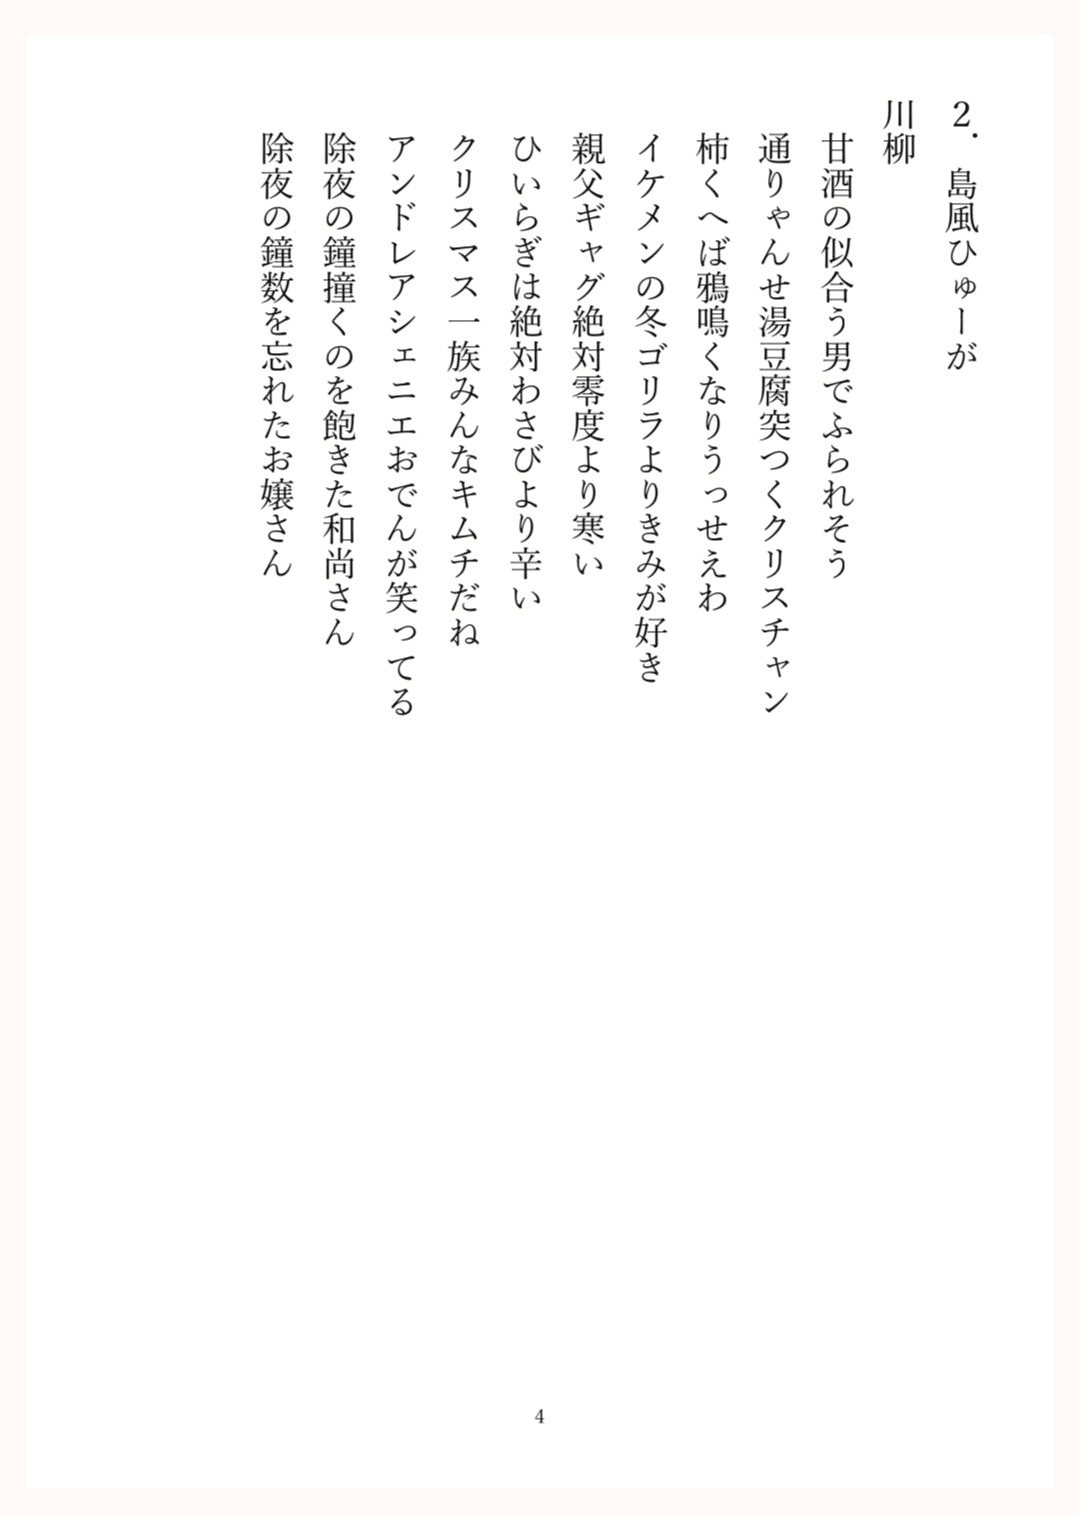 2. 島風ひゅーが
川柳
甘酒の似合う男でふられそう
通りゃんせ湯豆腐突つくクリスチャン
柿くへば鴉鳴くなりうっせえわ
イケメンの冬ゴリラよりきみが好き
親父ギャグ絶対零度より寒い
ひいらぎは絶対わさびより辛い
クリスマス一族みんなキムチだね
アンドレアシェニエおでんが笑ってる
除夜の鐘撞くのを飽きた和尚さん
除夜の鐘数を忘れたお嬢さん
4